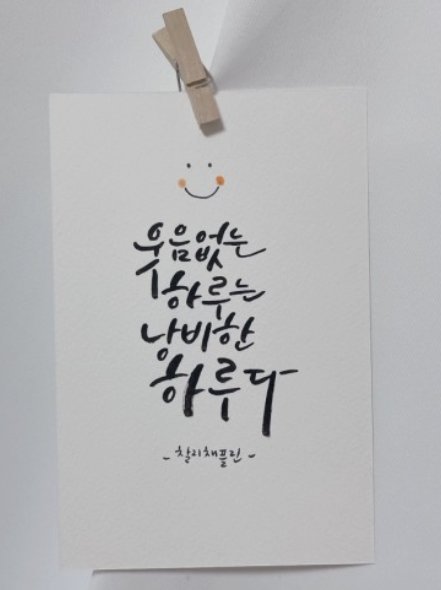 웃음없는
하루는
낭비한
하루다
- 찰리채플린 -